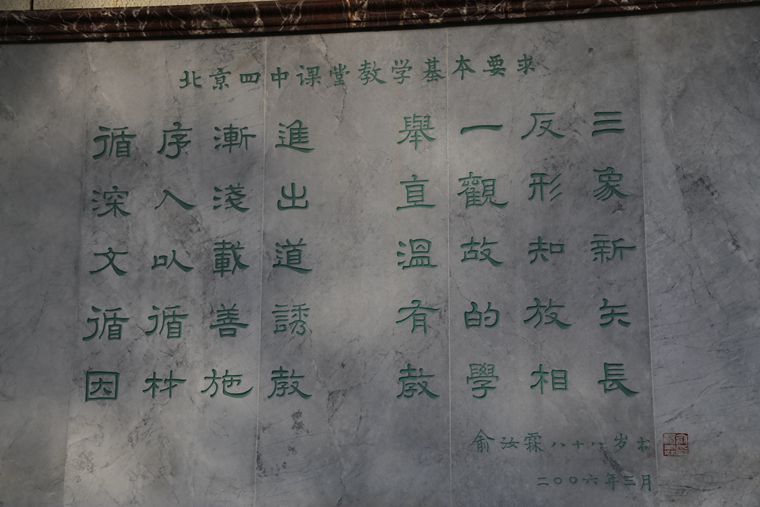 北京四中课堂教学基本要求
循序漸進 舉一反三
深入淺出 直觀形象
文以載道 溫故知新
循循善誘 有的放矢
因材施教 教學相長
俞汝霖八十八岁书
二〇〇六年三月